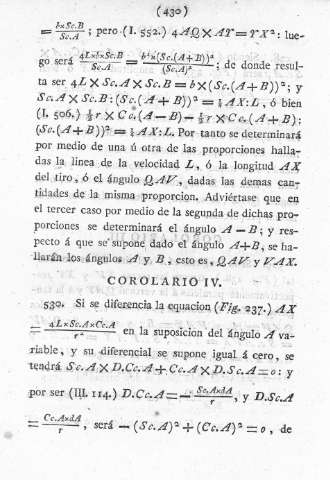 (430)
= b×Sc.B / Sc.A ; pero (I. 552.) 4AQ × AY = YX² : lue-
go será 4L×b×Sc.B / Sc.A = b²×(Sc.(A+B))² / (Sc.A)² ; de donde resul-
ta ser 4L × Sc.A × Sc.B = b × (Sc.(A+B))² ; y
Sc.A × Sc.B : (Sc.(A+B))² = ¼ AX : L, ó bien
(I. 506.) ½r × Cc.(A−B) − ½r × Cc.(A+B) :
(Sc.(A+B))² = ¼ AX : L. Por tanto se determinará
por medio de una ú otra de las proporciones halla-
das la linea de la velocidad L, ó la longitud AX
del tiro, ó el ángulo QAV, dadas las demas can-
tidades de la misma proporcion. Adviértase que en
el tercer caso por medio de la segunda de dichas pro-
porciones se determinará el ángulo A − B; y res-
pecto á que se supone dado el ángulo A+B, se ha-
llarán los ángulos A y B, esto es, QAV y VAX.
COROLARIO IV.
530. Si se diferencia la equacion (Fig. 237.) AX
= 4L×Sc.A×Cc.A / r² en la suposicion del ángulo A va-
riable, y su diferencial se supone igual á cero, se
tendrá Sc.A × D.Cc.A + Cc.A × D.Sc.A = 0 : y
por ser (III. 114.) D.Cc.A = − Sc.A×dA / r , y D.Sc.A
= Cc.A×dA / r , será − (Sc.A)² + (Cc.A)² = 0, de